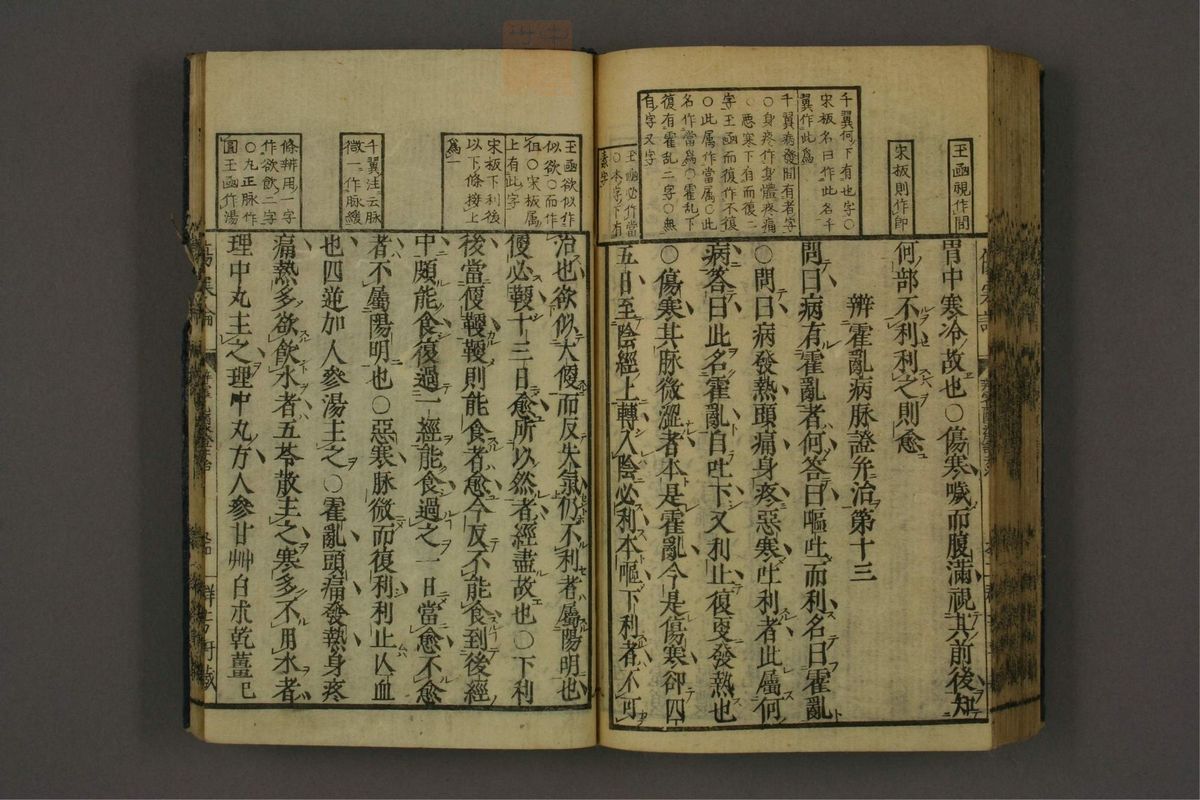 玉函視作間
宋板則作即
千翼何下有也字○
宋板名曰作此名千
翼作此為
千翼病發間有者字
○身疼作身體疼痛
○惡寒下有而復二
字玉函而復作不復
○此属作當属○此
名作當為○霍乱下
復有霍乱二字○無
自字又字
玉函必作當
○本字下有
素字
胃中寒冷故也○傷寒噦而腹滿視其前後知
何部不利利之則愈
辨霍亂病脉證并治第十三
問曰病有霍亂者何答曰嘔吐而利名曰霍亂
○問曰病發熱頭痛身疼惡寒吐利者此屬何
病答曰此名霍亂自吐下又利止復更發熱也
○傷寒其脉微濇者本是霍亂今是傷寒卻四
五日至陰經上轉入陰必利本嘔下利者不可
玉函欲似作
似欲○而作
但○宋板属
上有此字
宋板下利後
以下條接上
為一
千翼注云脉
微一作脉緩
條辨用一字
作欲飲二字
○丸正脉作
圓玉函作湯
治也欲似大便而反失氣仍不利者屬陽明也
便必鞕十三日愈所以然者經盡故也○下利
後當便鞕鞕則能食者愈今反不能食到後經
中頗能食復過一經能食過之一日當愈不愈
者不屬陽明也○惡寒脉微而復利利止亾血
也四逆加人參湯主之○霍亂頭痛發熱身疼
痛熱多欲飲水者五苓散主之寒多不用水者
理中丸主之理中丸方人參甘艸白朮乾薑已
傷寒論